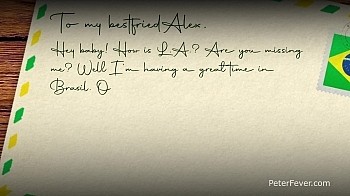 To my bestfried Alex.
Hey baby! How is L.A.? Are you missing
me? Well I'm having a great time in
Brasil. O
PeterFever.com